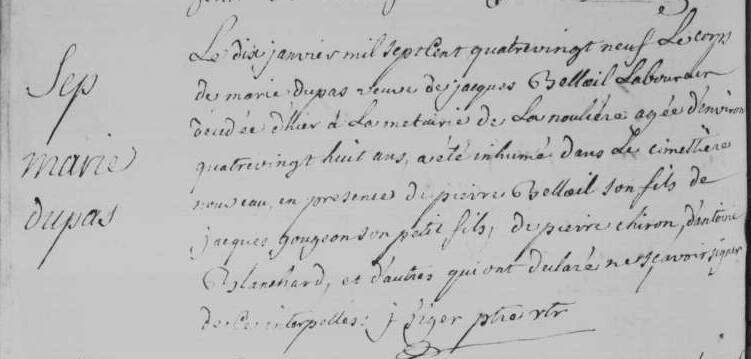 Sep
marie
dupas
Le dix janvier mil sept Cent quatrevingt neuf Le corps
de marie dupas veuve de jacques Belloeil Laboureur
décédée d'hier à La metairie de La noulière agée d'environ
quatrevingt huit ans, a été inhumé dans Le cimetière
nouveau, en presence de pierre Belloeil son fils de
jacques gougeon son petit fils, de pierre chiron, d'antoine
Blanchard, et d'autres qui ont declaré ne sçavoir signer
de ce interpellés : j ptre